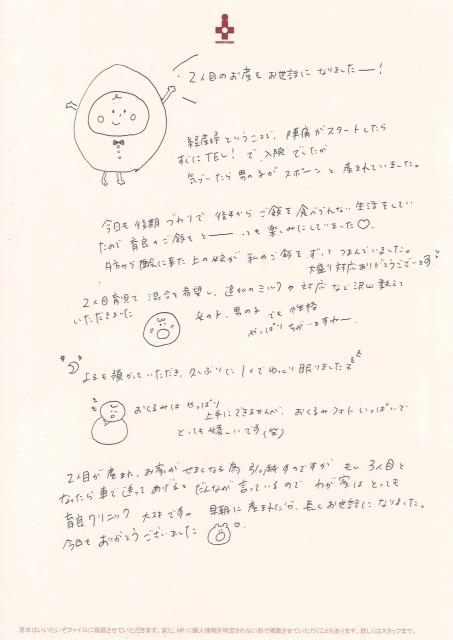 2人目のお産もお世話になりましたー!
経産婦ということで、陣痛がスタートしたら
すぐにTEL! で、入院でしたが
気づいたら男の子がスポーンと産まれていました。
今回も後期づわりで 後半からご飯を食べられない生活をしてい
たので 育良のご飯をとーっても楽しみにしていました♡。
夕方から面会に来た上の娘が 私のご飯をずっとつまんでいました。
大盛り対応ありがとうございます
2人目育児で 混合を希望し、追加のミルクや対応など沢山教えて
いただきました
女の子、男の子でも性格
やっぱりちがいますねー
よるも預かっていただき、久しぶりに1人でゆっくり眠りました
おくるみはやっぱり
上手にできませんが、おくるみフォトいっぱいで
とっても嬉しいです(笑)
2人目が産まれ、お家がせまくなる為 引っ越すのですが もし3人目と
なったら車で送ってあげると だんなが言っているので わが家はとっても
育良クリニック 大スキです。 早朝に産まれたから、長くお世話になりました。
今回も ありがとうございました ♡
原本はいいたいぞファイルに掲載させていただきます。また、HPに個人情報を特定されない形で掲載させていただくこともあります。詳しくはスタッフまで。